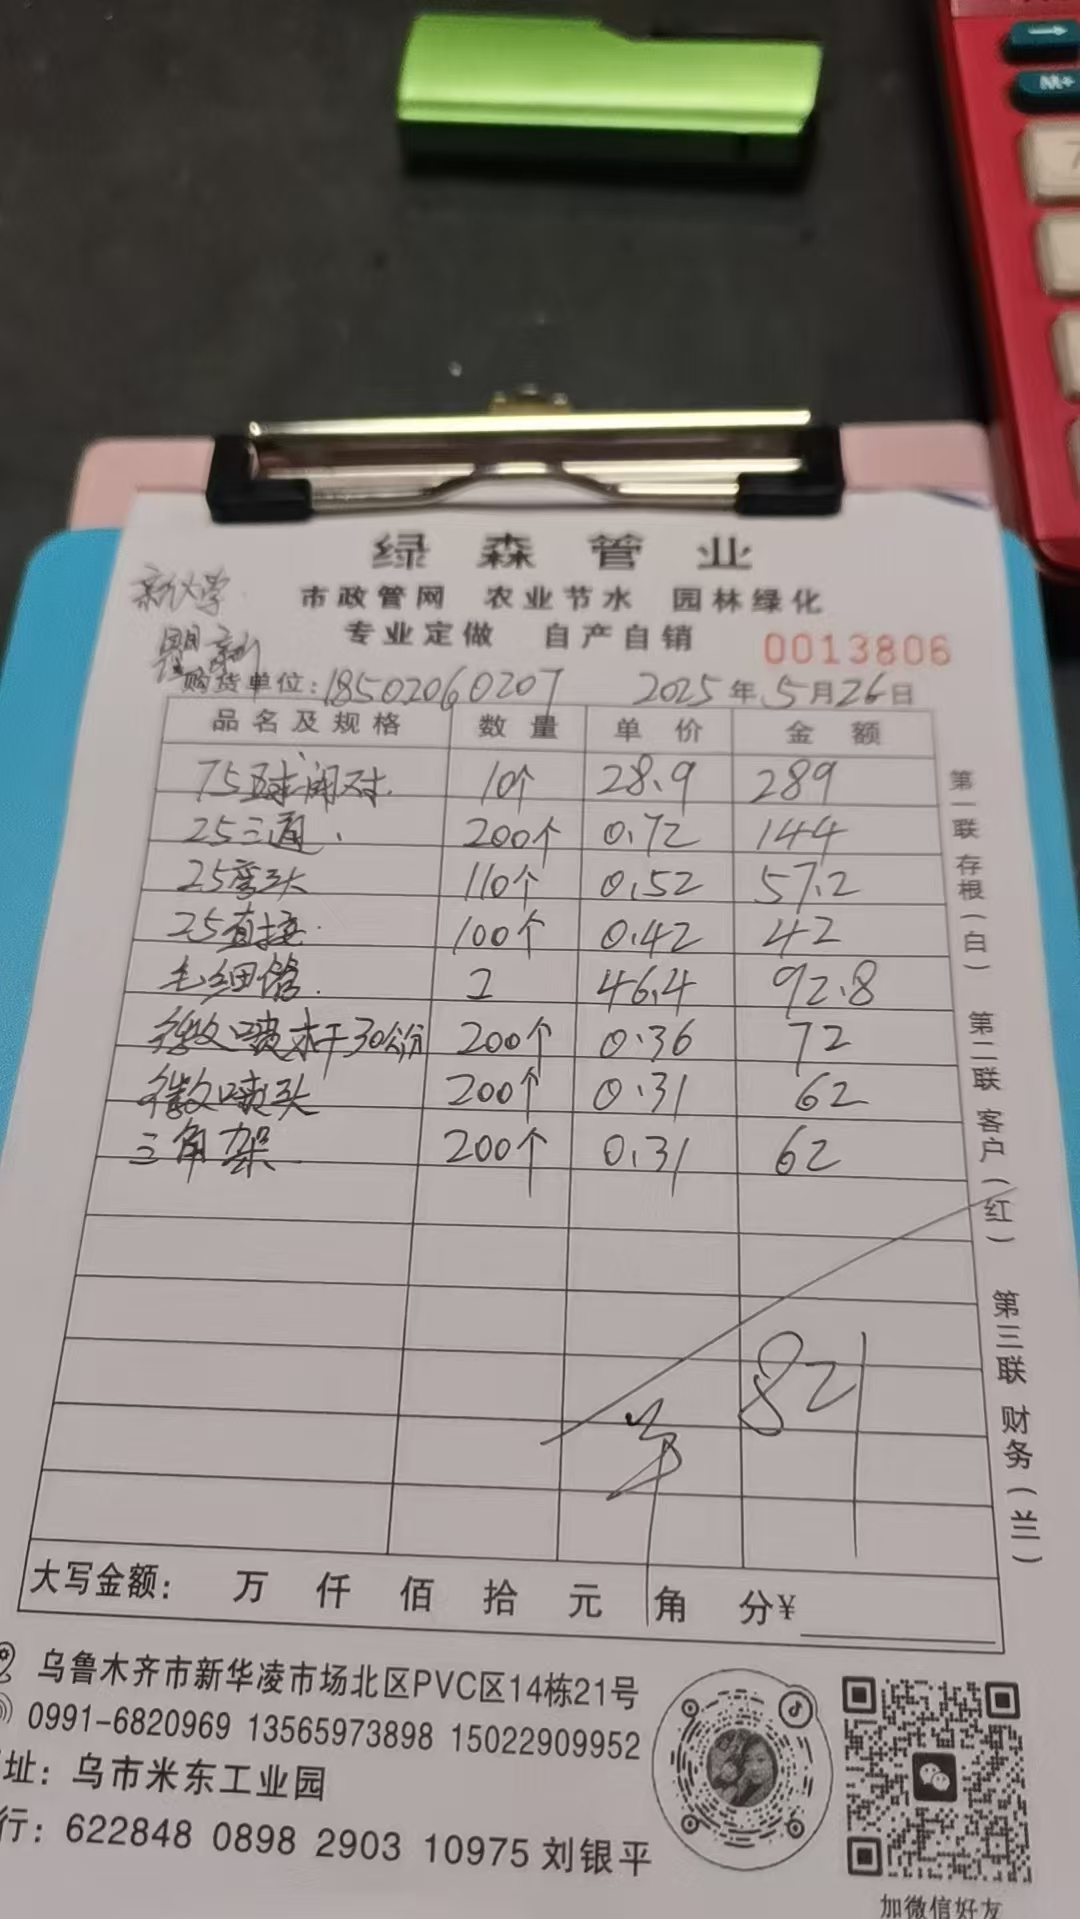 M+
7
绿森管业
新大学
市政管网 农业节水 园林绿化
专业定做 自产自销 0013806
购货单位:18502060207 2025年5月26日
品名及规格 数量 单价 金额
75球阀对 10个 28.9 289
25三通 200个 0.72 144
25弯头 110个 0.52 57.2
25直接 100个 0.42 42
毛细管 2 46.4 92.8
微喷杆30公分 200个 0.36 72
微喷头 200个 0.31 62
三角架 200个 0.31 62
821
第一联 存根(白) 第二联 客户(红) 第三联 财务(兰)
大写金额: 万 仟 佰 拾 元 角 分¥
乌鲁木齐市新华凌市场北区PVC区14栋21号
0991-6820969 13565973898 15022909952
址:乌市米东工业园
行:622848 0898 2903 10975 刘银平
加微信好友